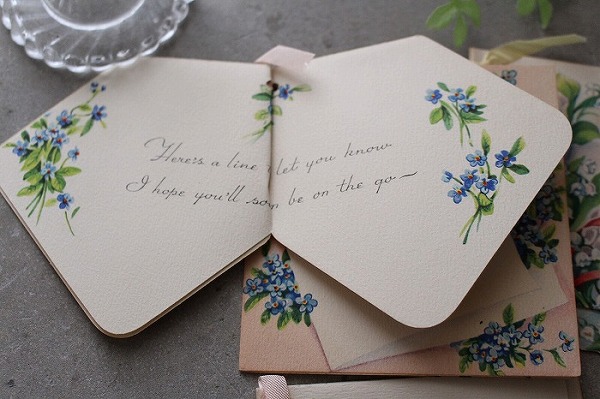 Here's a line let you know
I hope you'll soon be on the go~